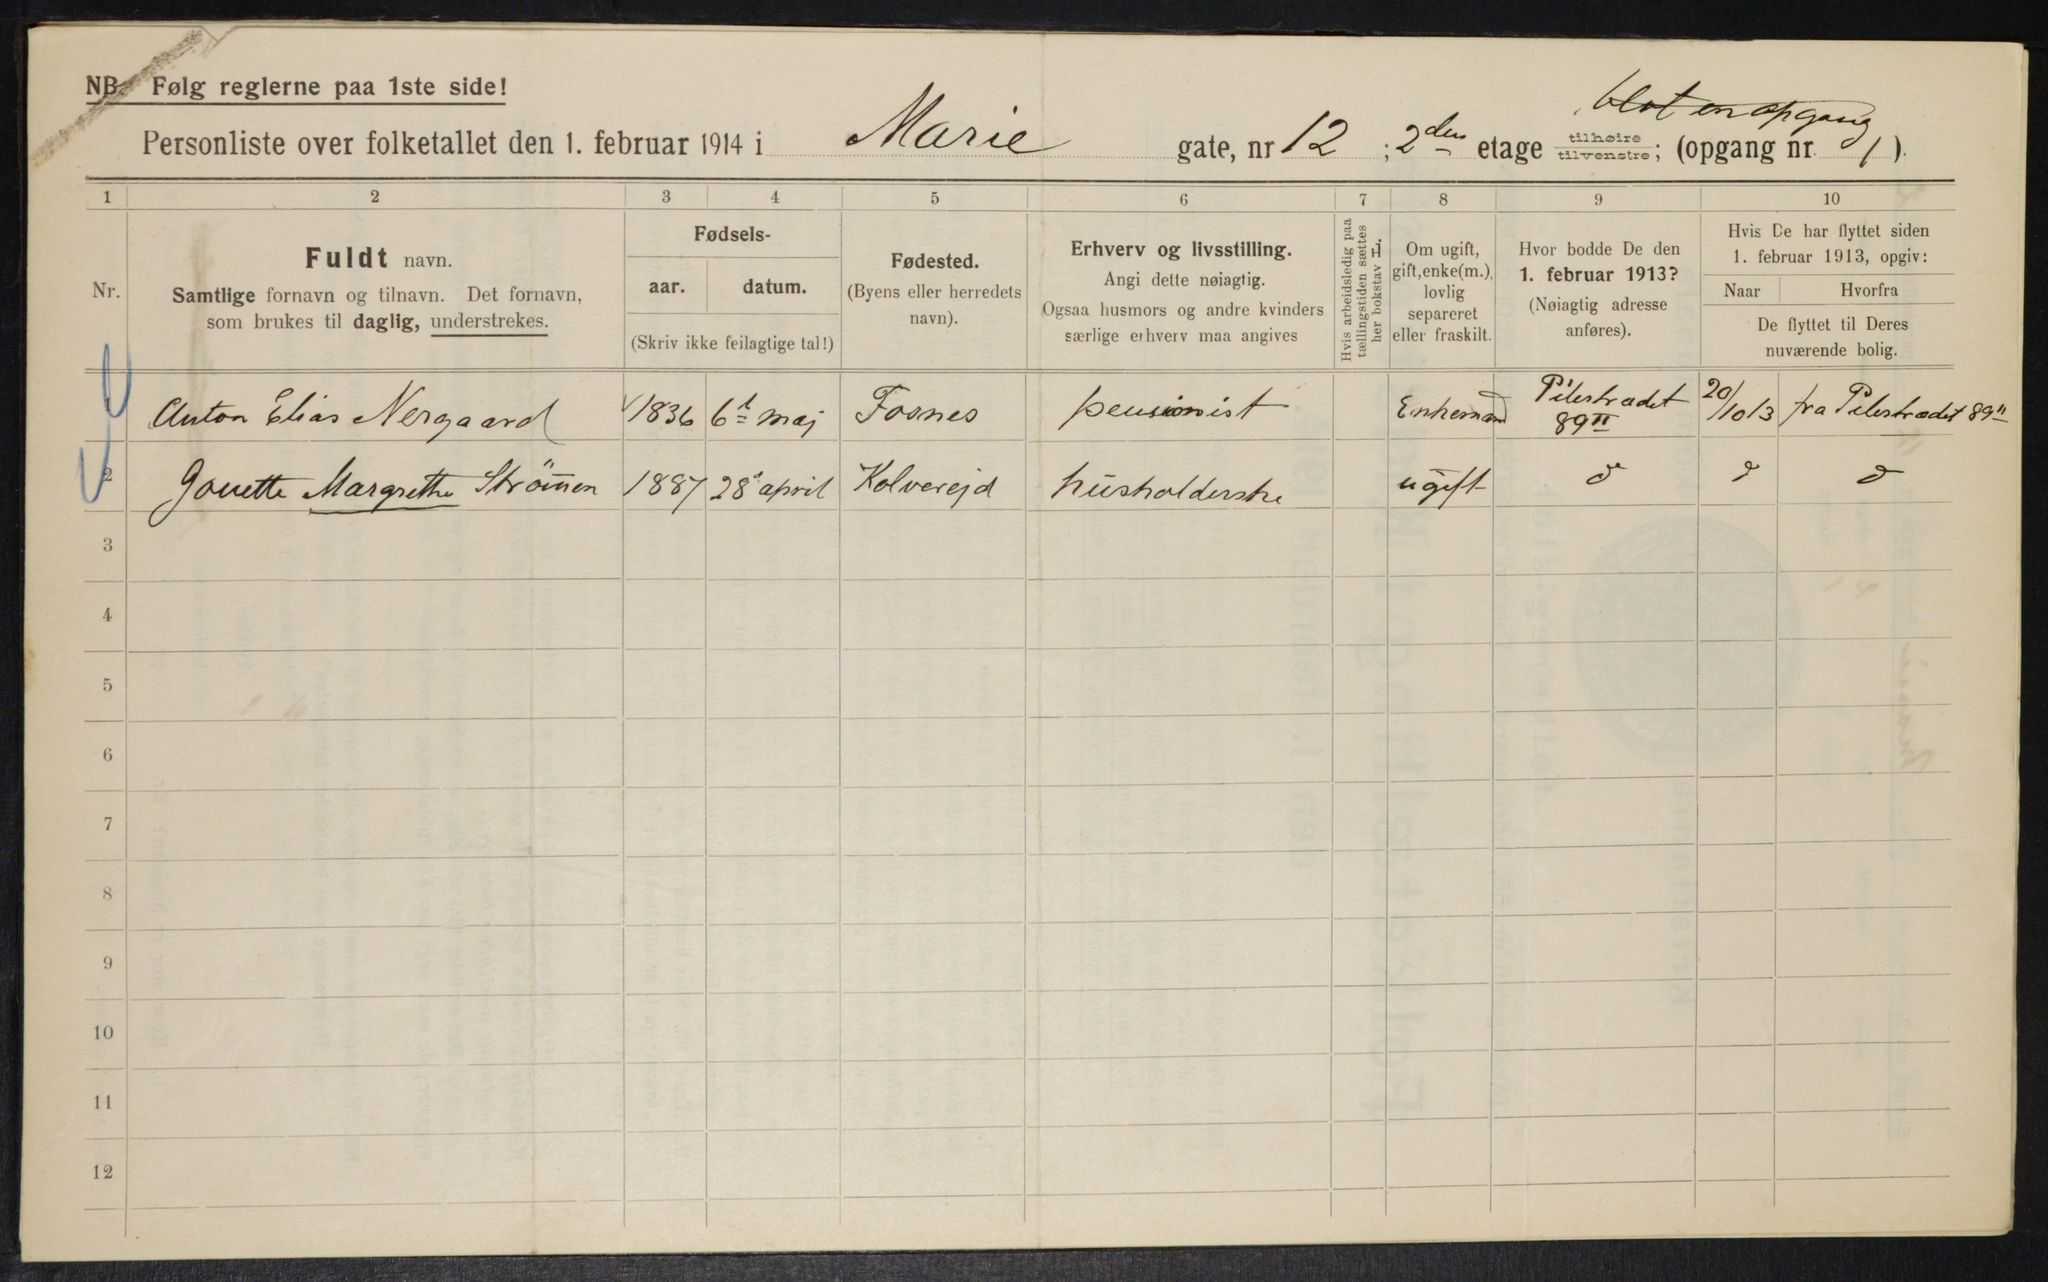 NB. Følg reglerne paa 1ste side!
blot en opgang
Personliste over folketallet den 1. februar 1914 i Marie gate, nr 12 ; 2den etage tilhøire tilvenstre; (opgang nr. 1).
1 2 3 4 5 6 7 8 9 10
Nr.
Fuldt navn.
Samtlige fornavn og tilnavn. Det fornavn,
som brukes til daglig, understrekes.
Fødsels-
aar. datum.
(Skriv ikke feilagtige tal!)
Fødested.
(Byens eller herredets
navn).
Erhverv og livsstilling.
Angi dette nøiagtig.
Ogsaa husmors og andre kvinders
særlige erhverv maa angives
Hvis arbeidsledig paa
tællingstiden sættes
her bokstav L.
Om ugift,
gift, enke(m.),
lovlig
separeret
eller fraskilt.
Hvor bodde De den
1. februar 1913?
(Nøiagtig adresse
anføres).
Hvis De har flyttet siden
1. februar 1913, opgiv:
Naar Hvorfra
De flyttet til Deres
nuværende bolig.
Anton Elias Nergaard 1836 6te maj Fosnes pensionist Enkemand Pilestrædet 89II 20/10 13 fra Pilestrædet 89II
2 Gonette Margrethe Strömmen 1887 28de april Kolvereid husholderske ugift do do do
3
4
5
6
7
8
9
10
11
12